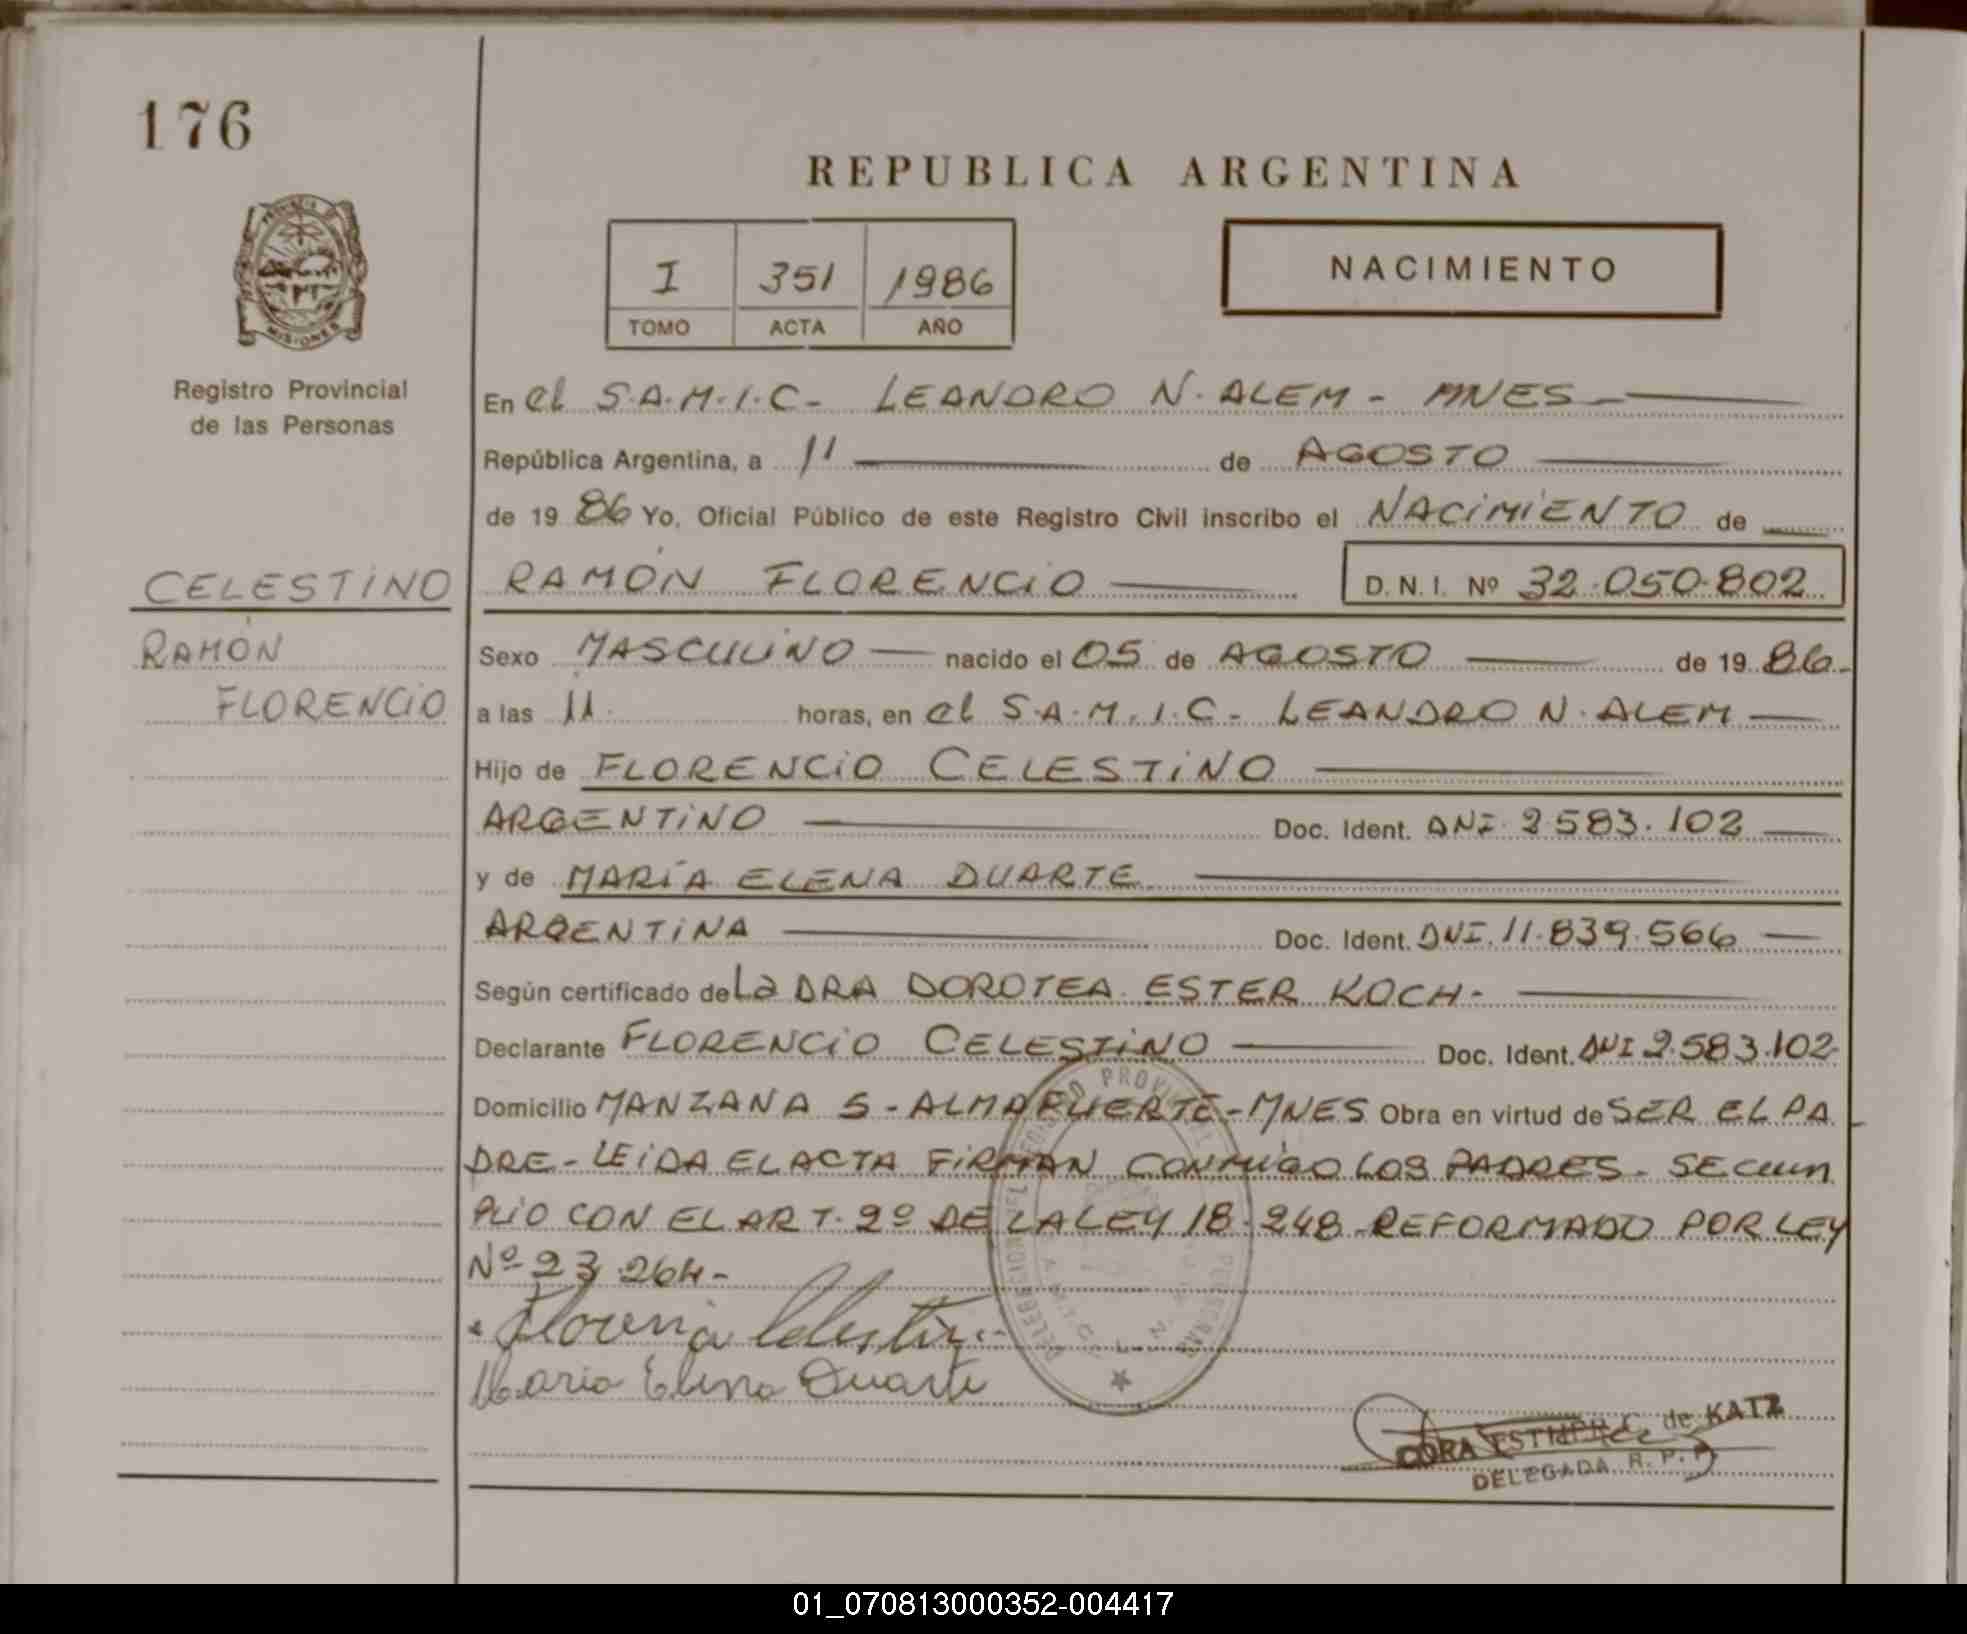 176
REPUBLICA ARGENTINA
PROVINCIA DE
MISIONES
I 351 1986
TOMO ACTA AÑO
NACIMIENTO
Registro Provincial
de las Personas
En el S.A.M.I.C- LEANDRO N. ALEM - MNES
República Argentina, a 11 de AGOSTO
de 19 86 Yo, Oficial Público de este Registro Civil inscribo el NACIMIENTO de
CELESTINO RAMÓN FLORENCIO D.N.I. Nº 32.050.802
RAMÓN
FLORENCIO
Sexo MASCULINO nacido el 05 de AGOSTO de 19 86
a las 11 horas, en el S.A.M.I.C- LEANDRO N. ALEM
Hijo de FLORENCIO CELESTINO
ARGENTINO Doc. Ident. DNI. 2.583.102
y de MARÍA ELENA DUARTE
ARGENTINA Doc. Ident. DNI. 11.839.566
Según certificado de La DRA DOROTEA ESTER KOCH-
Declarante FLORENCIO CELESTINO Doc. Ident. DNI 2.583.102
Domicilio MANZANA 5-ALMAFUERTE-MNES Obra en virtud de SER EL PA
DRE- LEIDA EL ACTA FIRMAN CONMIGO LOS PADRES- SE CUM
PLIO CON EL ART. 2º DE LA LEY 18.248 REFORMADO POR LEY
Nº 23.264-
Florencio Celestino
Maria Elena Duarte
de KATZ
DELEGADA R. P. P.
01_070813000352-004417